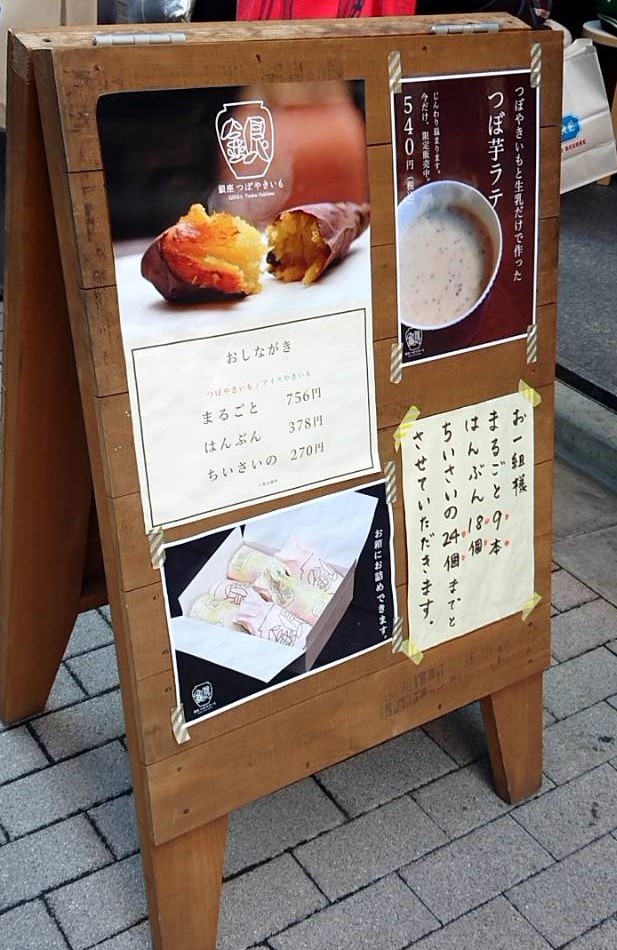 銀
銀座つぼやきいも
GINZA Tsubo Yakiimo
おしながき
つぼやきいも / アイスやきいも
まるごと 756円
はんぶん 378円
ちいさいの 270円
つぼやきいもと生乳だけで作った
つぼ芋ラテ
じんわり温まります。
今だけ、限定販売中。
540円
お箱にお詰めできます。
お一組様
まるごと9本
はんぶん18個
ちいさいの24個までと
させていただきます。